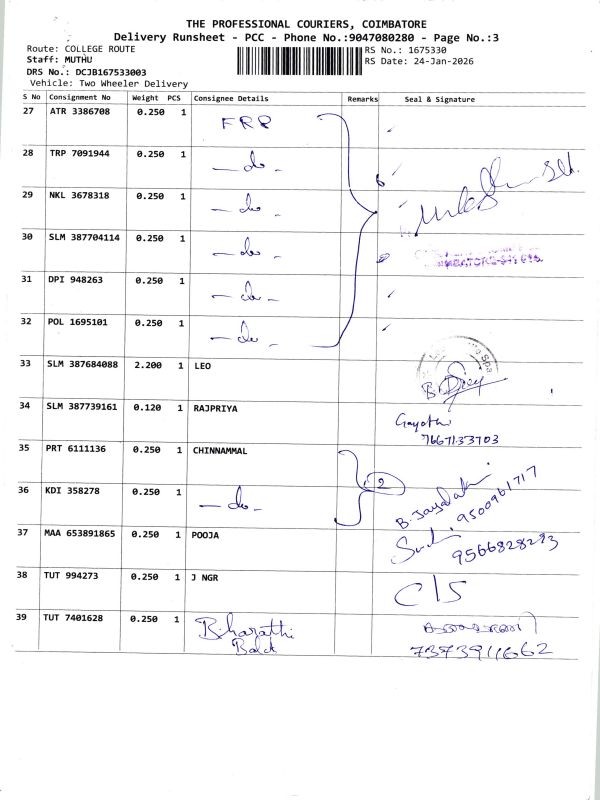 THE PROFESSIONAL COURIERS, COIMBATORE
Delivery Runsheet - PCC - Phone No.:9047080280 - Page No.:3
Route: COLLEGE ROUTE
RS No.: 1675330
Staff: MUTHU
RS Date: 24-Jan-2026
DRS No.: DCJB167533003
Vehicle: Two Wheeler Delivery
S No Consignment No Weight PCS Consignee Details Remarks Seal & Signature
27 ATR 3386708 0.250 1 FRP
28 TRP 7091944 0.250 1 - do -
29 NKL 3678318 0.250 1 - do -
30 SLM 387704114 0.250 1 - do -
31 DPI 948263 0.250 1 - do -
32 POL 1695101 0.250 1 - do -
33 SLM 387684088 2.200 1 LEO
34 SLM 387739161 0.120 1 RAJPRIYA
7667133703
35 PRT 6111136 0.250 1 CHINNAMMAL
2
36 KDI 358278 0.250 1 - do -
9500961717
37 MAA 653891865 0.250 1 POOJA
9566828293
38 TUT 994273 0.250 1 J NGR C/S
39 TUT 7401628 0.250 1 Bharathi
7373911662